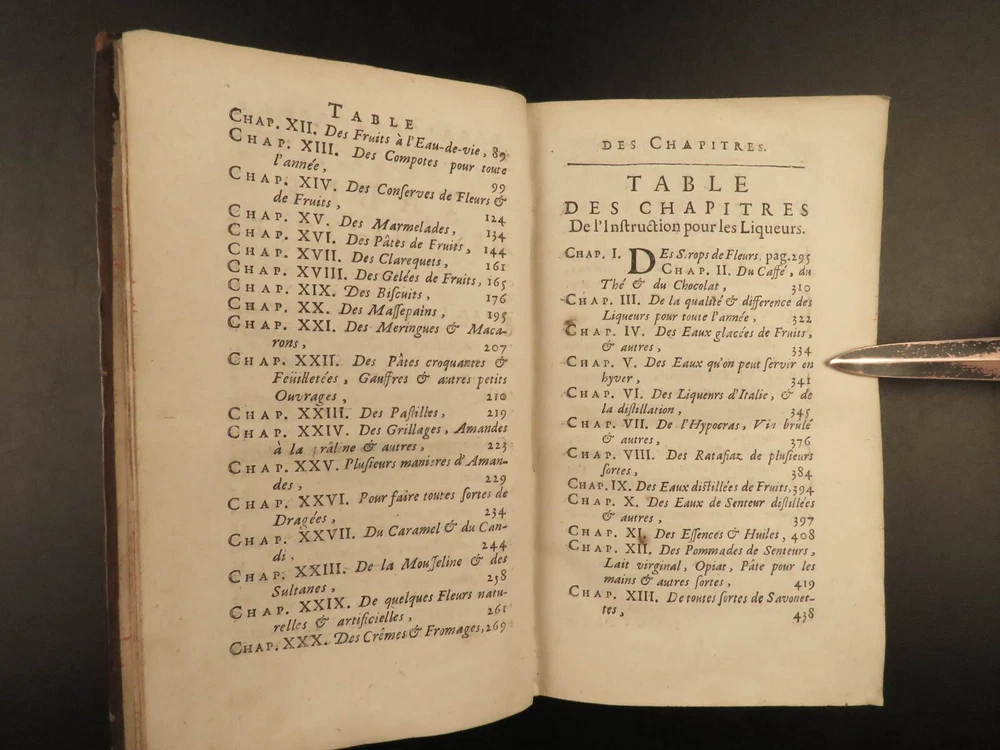 TABLE
CHAP. XII. Des Fruits à l'Eau-de-vie, 89
CHAP. XIII. Des Compotes pour toute
l'année, 99
CHAP. XIV. Des Conserves de Fleurs &
de Fruits, 124
CHAP. XV. Des Marmelades, 134
CHAP. XVI. Des Pâtes de Fruits, 144
CHAP. XVII. Des Clarequets, 161
CHAP. XVIII. Des Gelées de Fruits, 165
CHAP. XIX. Des Biscuits, 176
CHAP. XX. Des Massepains, 195
CHAP. XXI. Des Meringues & Maca-
rons, 207
CHAP. XXII. Des Pâtes croquantes &
Feüilletées, Gauffres & autres petits
Ouvrages, 210
CHAP. XXIII. Des Pastilles, 219
CHAP. XXIV. Des Grillages, Amandes
à la prâline & autres, 223
CHAP. XXV. Plusieurs manieres d'Aman-
des, 229
CHAP. XXVI. Pour faire toutes sortes de
Dragées, 234
CHAP. XXVII. Du Caramel & du Can-
di, 244
CHAP. XXIII. De la Mousseline & des
Sultanes, 258
CHAP. XXIX. De quelques Fleurs natu-
relles & artificielles, 261
CHAP. XXX. Des Crêmes & Fromages, 269
DES CHAPITRES.
TABLE
DES CHAPITRES
De l'Instruction pour les Liqueurs.
CHAP. I. DEs Sirops de Fleurs, pag. 295
CHAP. II. Du Caffé, du
Thé & du Chocolat, 310
CHAP. III. De la qualité & difference des
Liqueurs pour toute l'année, 322
CHAP. IV. Des Eaux glacées de Fruits,
& autres, 334
CHAP. V. Des Eaux qu'on peut servir en
hyver, 341
CHAP. VI. Des Liqueurs d'Italie, & de
la distillation, 345
CHAP. VII. De l'Hypocras, Vin brûlé
& autres, 376
CHAP. VIII. Des Ratafiaz de plusieurs
sortes, 384
CHAP. IX. Des Eaux distillées de Fruits, 394
CHAP. X. Des Eaux de Senteur distillées
& autres, 397
CHAP. XI. Des Essences & Huiles, 408
CHAP. XII. Des Pommades de Senteurs,
Lait virginal, Opiat, Pâte pour les
mains & autres sortes, 419
CHAP. XIII. De toutes sortes de Savonet-
tes, 438